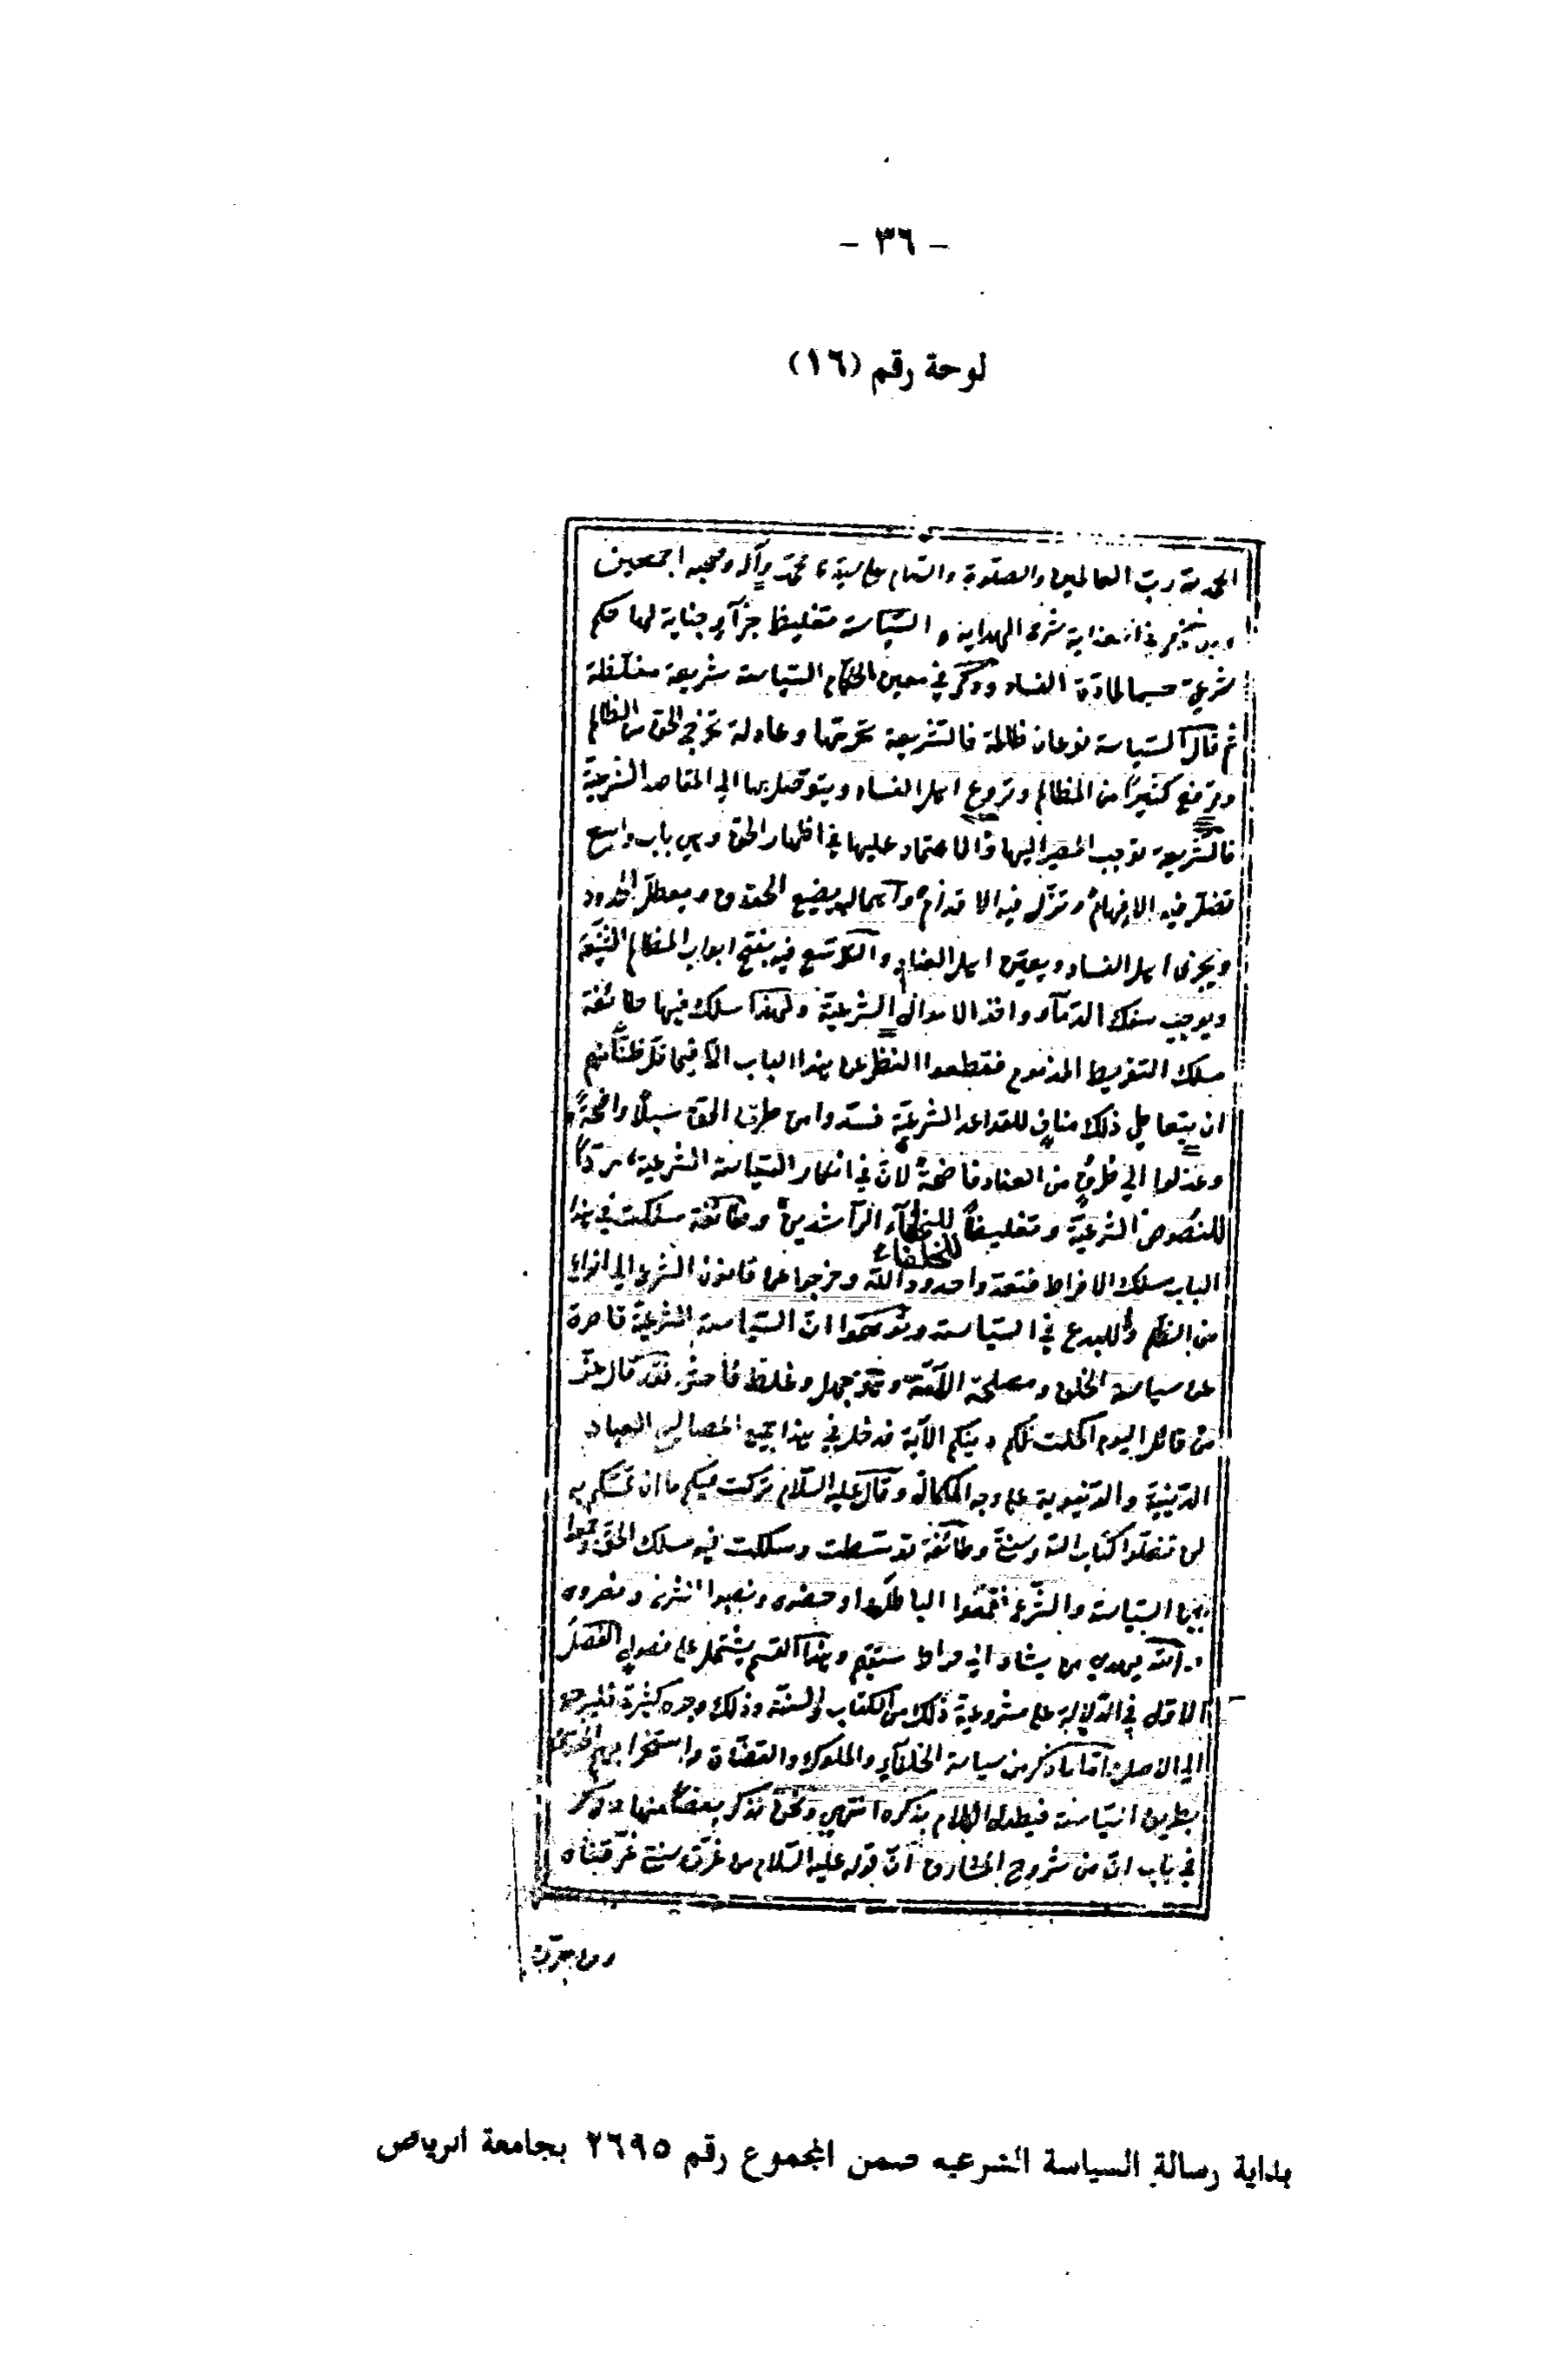 - ٣٦ -
لوحة رقم (١٦)
الحمد لله رب العالمين والصلوة والسلام على سيدنا محمد وآله وصحبه اجمعين
في شرح الهداية والسياسة تغليظ جزآء جناية لها حكم
شرعي حسما لمادة الفساد وذكر في معين الحكام السياسة شريعة مغلظة
ثم قال السياسة نوعان ظالمة فالشريعة تحرمها وعادلة تخرج الحق من الظالم
وترفع كثيرا من المظالم وتروع اهل الفساد ويتوصل بها الى المقاصد الشرعية
فالشريعة توجب المصير اليها والاعتماد عليها في اظهار الحق وهي باب واسع
تضل فيه الافهام وتزل فيه الاقدام واهماله يضيع الحقوق ويعطل الحدود
ويجرى اهل الفساد ويعين اهل العناد والتوسع فيه يفتح ابواب المظالم الشنيعة
ويوجب سفك الدمآء واخذ الاموال الشرعية ولهذا سلك فيها طائفة
مسلك التفريط المذموم فقطعوا النظر عن هذا الباب الا فيما قل ظنا منهم
ان يتعاطى ذلك مناف للقواعد الشرعية فسدوا من طرق الحق سبلا واضحة
وعدلوا الى طرق من العناد فاضحة لان في انكار السياسة الشرعية ردا
للنصوص الشرعية وتغليطا للخلفآء الراشدين وطائفة سلكت في هذا
للخلفاء
الباب مسلك الافراط فتعدوا حدود الله وخرجوا عن قانون الشرع الى انواع
من الظلم والبدع في السياسة وتوهموا ان السياسة الشرعية قاصرة
عن سياسة الخلق ومصلحة الامة وهو جهل وغلط فاحش فقد قال عز
من قائل اليوم اكملت لكم دينكم الآية فدخل في هذا جميع المصالح العباد
الدينية والدنيوية على وجه الكمال وقال عليه السلام تركت فيكم ما ان تمسكتم به
لن تضلوا كتاب الله وسنتي وطائفة توسطت وسلكت فيه مسلك الحق وجمعوا
بين السياسة والشرع فقمعوا الباطل ودحضوه ونصبوا الشرع ونصروه
والله يهدي من يشاء الى صراط مستقيم وهذا القسم يشتمل على فصول الفصل
الاول في الدلالة على مشروعية ذلك من الكتاب والسنة وذلك وجوه كثيرة فليرجع
الى الاصل واما ما ذكر من سياسة الخلفآء والملوك والقضاة واستخراجهم الحقوق
بطريق السياسة فيطول الكلام بذكره انتهى ونحن نذكر بعضا منها وذكر
في باب ان من شروح المشارق ان قوله عليه السلام من غرق سنح غرقناه
ومن حرق
بداية رسالة السياسة الشرعيه ضمن المجموع رقم ٢٦٩٥ بجامعة الرياض